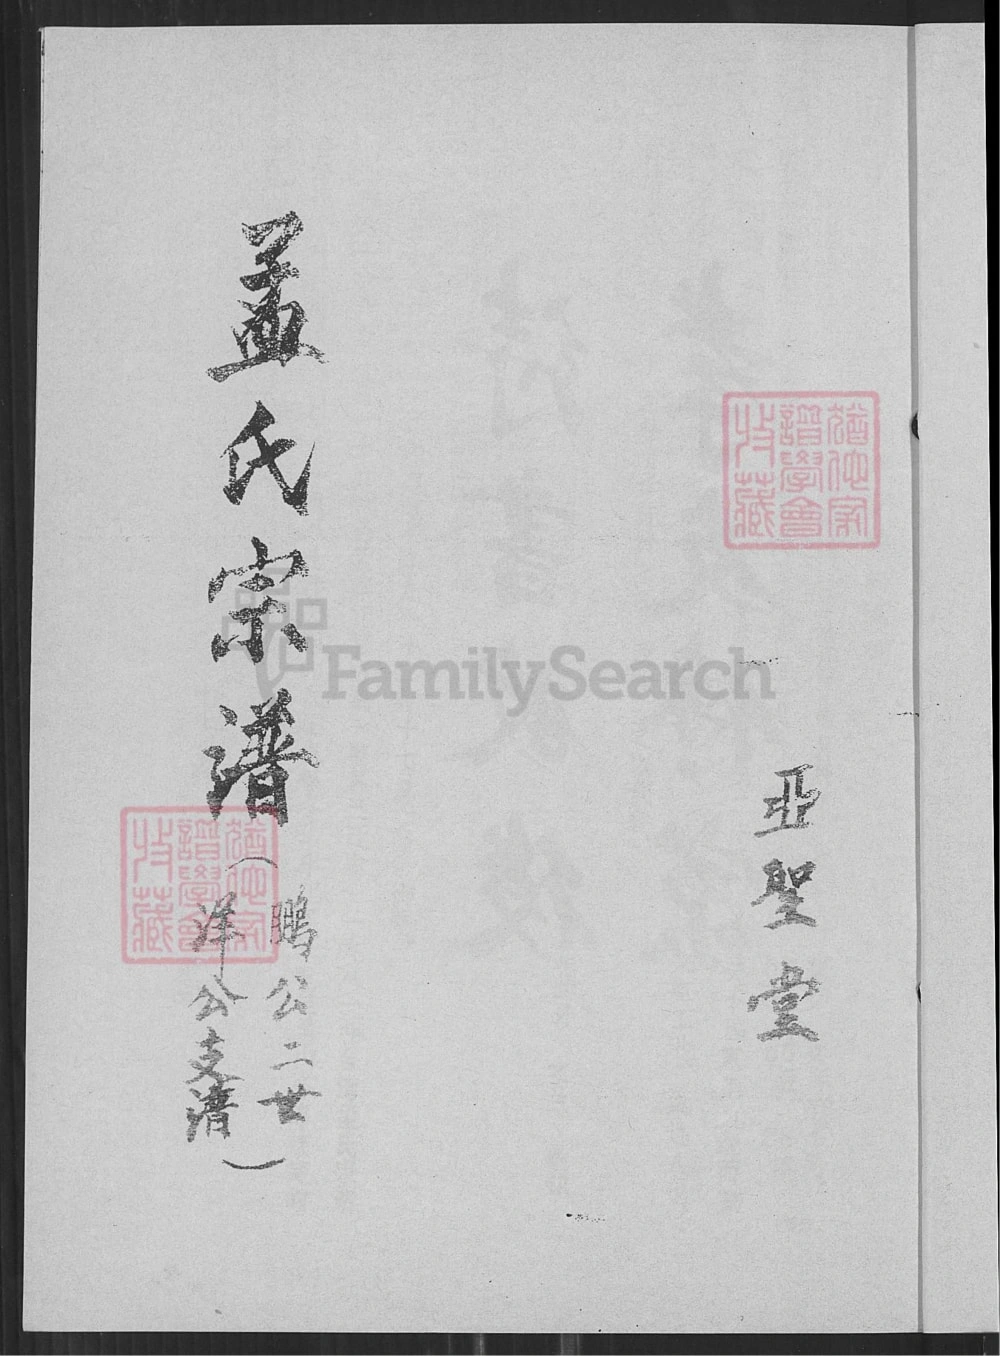 亞聖堂
孟氏宗譜
（鵬公二世
洋公支譜）
猶他家
譜學會
收藏
猶他家
譜學會
收藏
FamilySearch